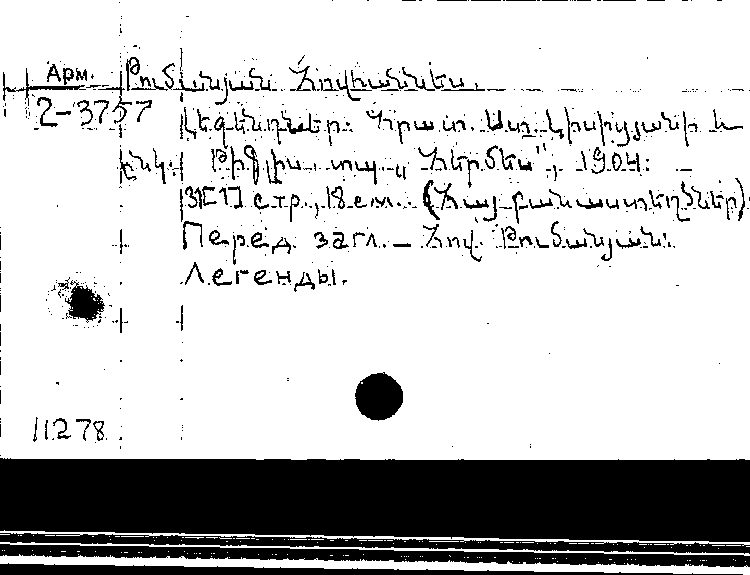 Арм. Թումանյան Հովհաննես.
2-3757 Լեգենդներ. Հրատ. Ստ. Լիսիցյանի և
ընկ. Թիֆլիս, տպ. „Հերմես", 1904:
31[1] стр., 18 см. (Հայ բանաստեղծներ)
Перед загл. – Հով. Թումանյան:
Легенды.
11278